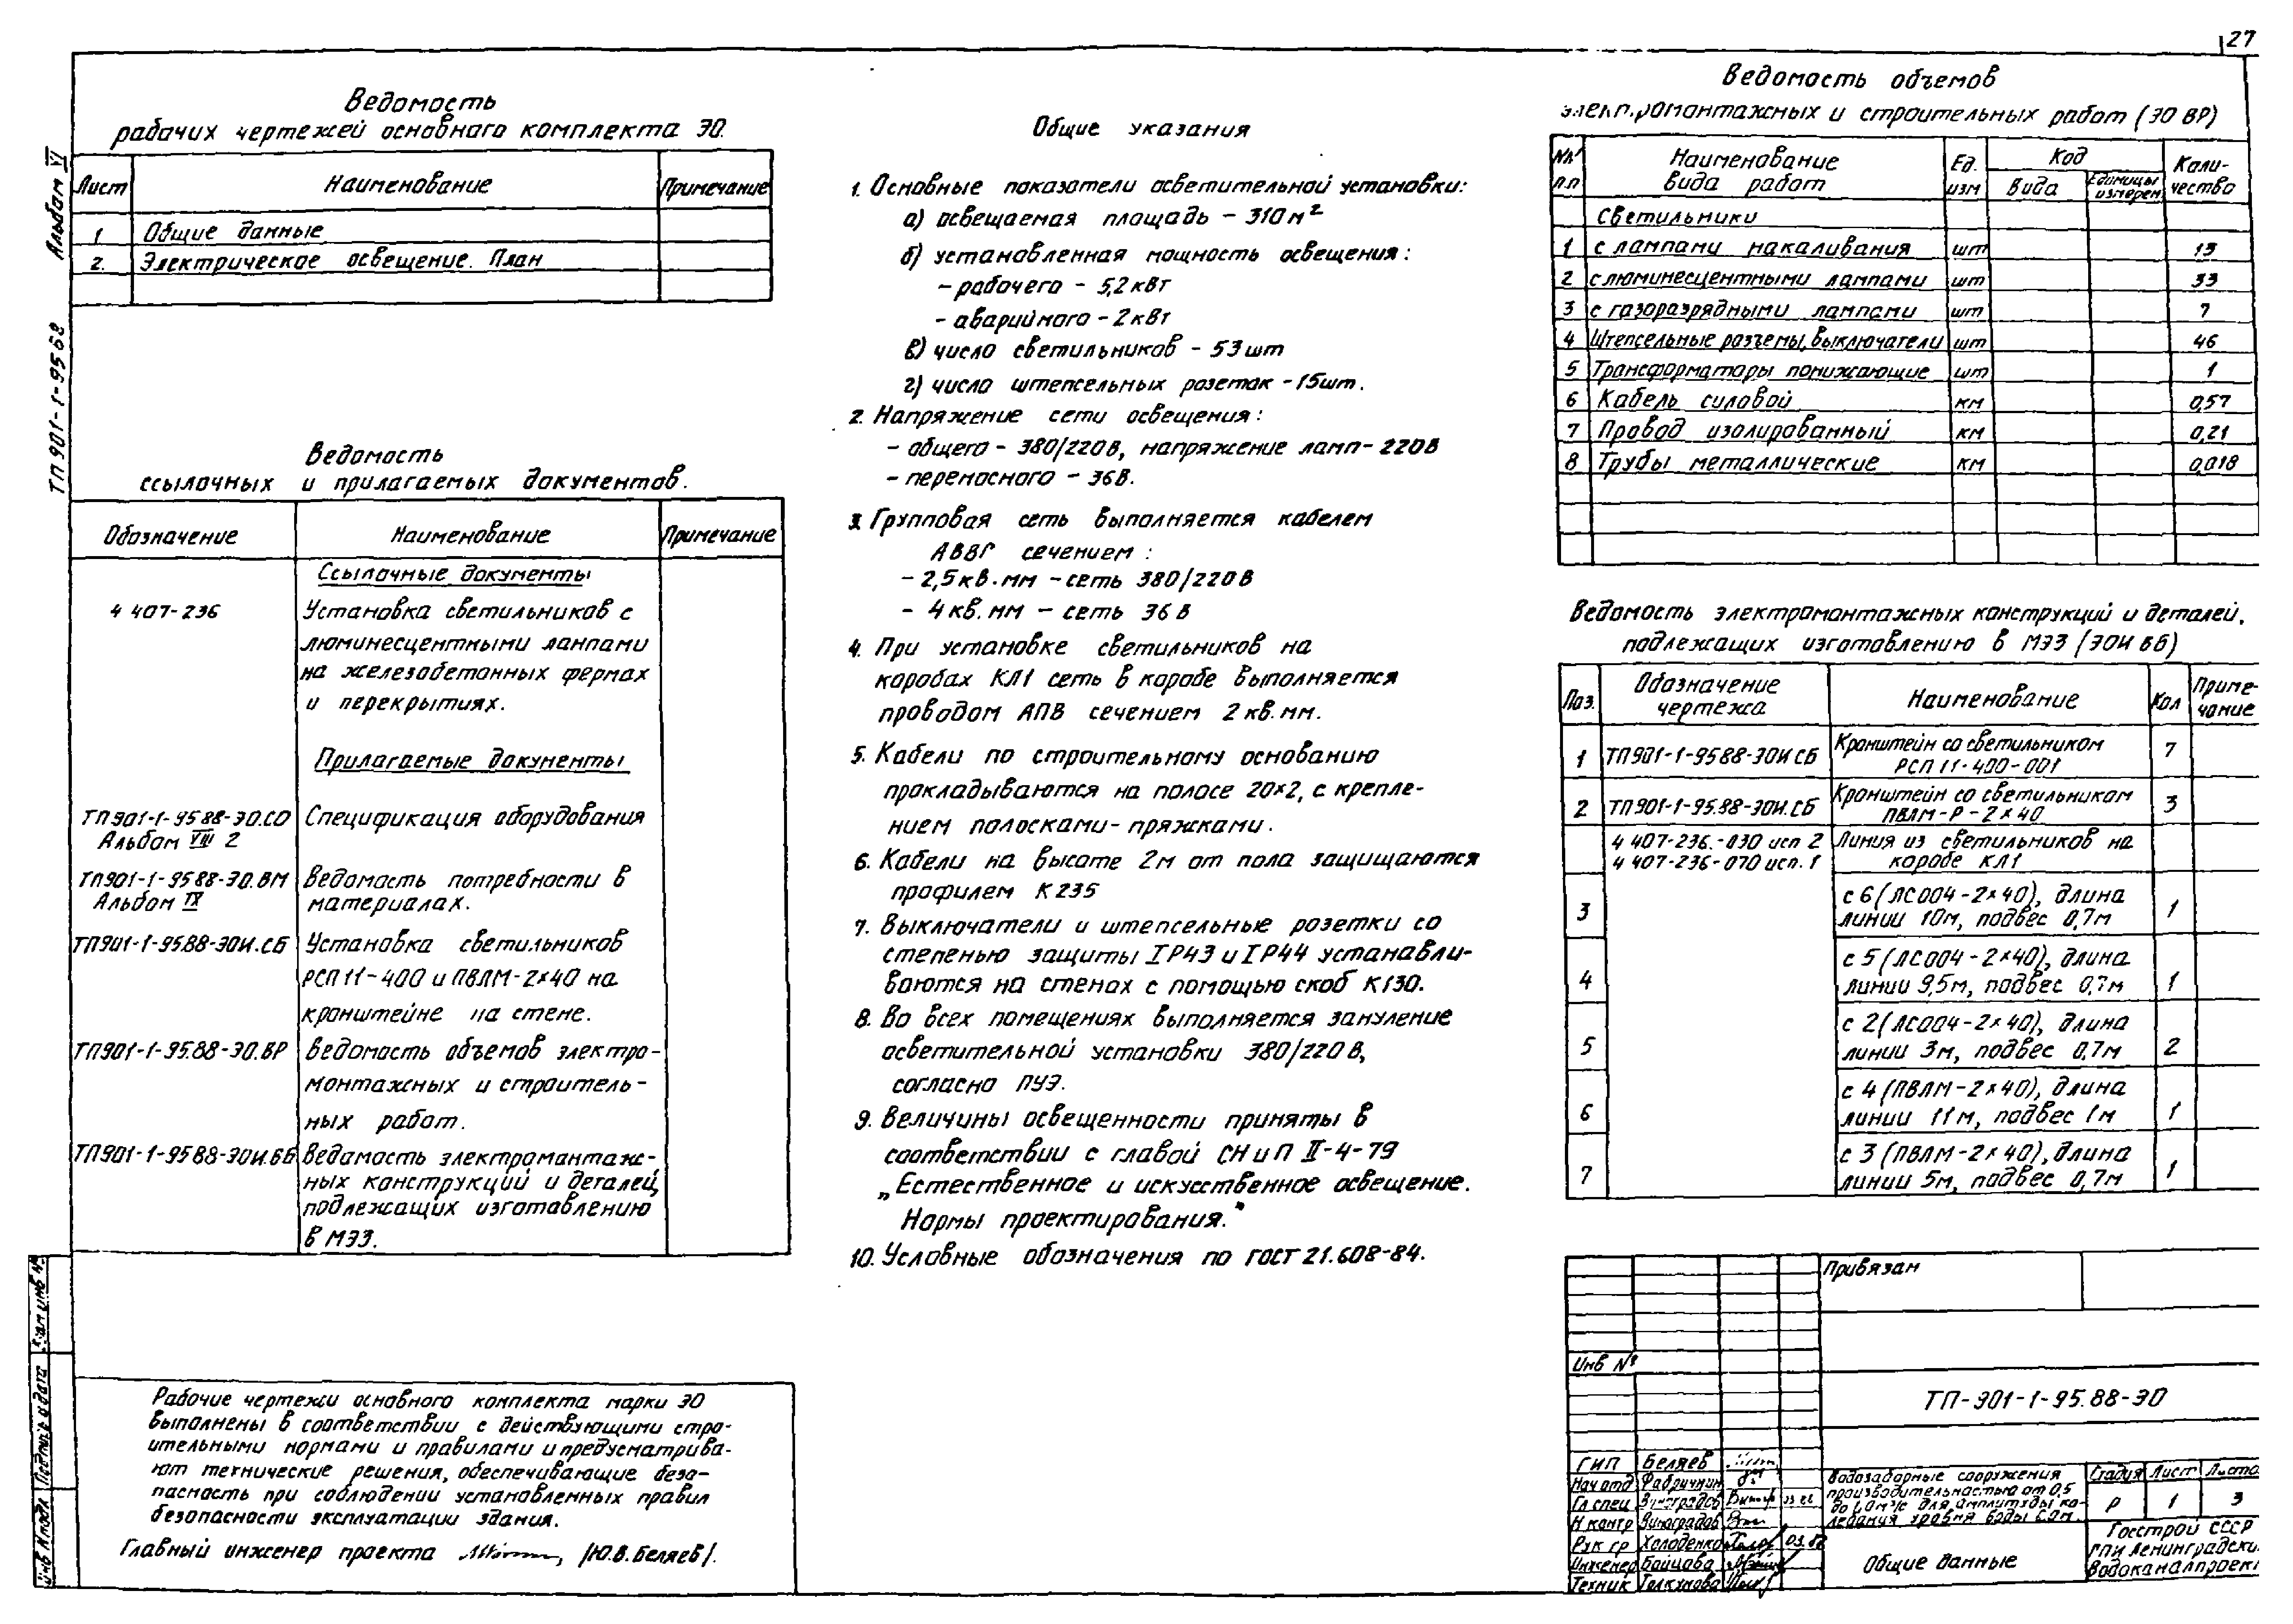 27
Альбом VI
ТП 901-1-95.88
Ведомость
рабочих чертежей основного комплекта ЭО.
Лист Наименование Примечание
1 Общие данные
2. Электрическое освещение. План
Ведомость
ссылочных и прилагаемых документов.
Обозначение Наименование Примечание
Ссылочные документы
4 407-236 Установка светильников с
люминесцентными лампами
на железобетонных фермах
и перекрытиях.
Прилагаемые документы
ТП901-1-95.88-ЭО.СО Спецификация оборудования
Альбом VIII 2
ТП901-1-95.88-ЭО.ВМ Ведомость потребности в
Альбом IX материалах.
ТП901-1-95.88-ЭОИ.СБ Установка светильников
РСП11-400 и ПВЛМ-2×40 на
кронштейне на стене.
ТП901-1-95.88-ЭО.ВР Ведомость объемов электро-
монтажных и строитель-
ных работ.
ТП901-1-95.88-ЭОИ.ВБ Ведомость электромонтаж-
ных конструкций и деталей,
подлежащих изготовлению
в МЭЗ.
Рабочие чертежи основного комплекта марки ЭО
выполнены в соответствии с действующими стро-
ительными нормами и правилами и предусматрива-
ют технические решения, обеспечивающие безо-
пасность при соблюдении установленных правил
безопасности эксплуатации здания.
Главный инженер проекта /Ю.В.Беляев/.
Общие указания
1. Основные показатели осветительной установки:
а) освещаемая площадь - 310 м²
б) установленная мощность освещения:
- рабочего - 5,2 кВт
- аварийного - 2 кВт
в) число светильников - 53 шт
г) число штепсельных розеток - 15шт.
2. Напряжение сети освещения:
- общего - 380/220 В, напряжение ламп - 220 В
- переносного - 36 В.
3. Групповая сеть выполняется кабелем
АВВГ сечением:
- 2,5 кв.мм - сеть 380/220 В
- 4 кв.мм - сеть 36 В
4. При установке светильников на
коробах КЛ1 сеть в коробе выполняется
проводом АПВ сечением 2 кв.мм.
5. Кабели по строительному основанию
прокладываются на полосе 20×2, с крепле-
нием полосками-пряжками.
6. Кабели на высоте 2м от пола защищаются
профилем К 235
7. Выключатели и штепсельные розетки со
степенью защиты IР43 и IР44 устанавли-
ваются на стенах с помощью скоб К130.
8. Во всех помещениях выполняется зануление
осветительной установки 380/220 В,
согласно ПУЭ.
9. Величины освещенности приняты в
соответствии с главой СНиП II-4-79
„Естественное и искусственное освещение.
Нормы проектирования."
10. Условные обозначения по ГОСТ 21.608-84.
Ведомость объемов
электромонтажных и строительных работ (ЭО ВР)
№№ п.п Наименование вида работ Ед. изм Код Вида Единицы измерен Коли-чество
Светильники
1 с лампами накаливания шт 13
2 с люминесцентными лампами шт 33
3 с газоразрядными лампами шт 7
4 Штепсельные разъемы, выключатели шт 46
5 Трансформаторы понижающие шт 1
6 Кабель силовой км 0,57
7 Провод изолированный км 0,21
8 Трубы металлические км 0,018
Ведомость электромонтажных конструкций и деталей,
подлежащих изготовлению в МЭЗ (ЭОИ ВБ)
Поз. Обозначение чертежа Наименование Кол Приме-чание
1 ТП901-1-95.88-ЭОИ.СБ Кронштейн со светильником 7
РСП 11-400-001
2 ТП901-1-95.88-ЭОИ.СБ Кронштейн со светильником 3
ПВЛМ-Р-2×40
4 407-236.-030 исп 2 Линия из светильников на
4 407-236-070 исп. 1 коробе КЛ1
3 с 6 (ЛСО04-2×40), длина
линии 10м, подвес 0,7м 1
4 с 5 (ЛСО04-2×40), длина
линии 9,5м, подвес 0,7м 1
5 с 2 (ЛСО04-2×40), длина
линии 3м, подвес 0,7м 2
6 с 4 (ПВЛМ-2×40), длина
линии 11м, подвес 1м 1
7 с 3 (ПВЛМ-2×40), длина
линии 5м, подвес 0,7м 1
Привязан
Инв №
ТП-901-1-95.88-ЭО
ГИП Беляев
Нач отд Фабричнин
Гл спец Виноградов
Н контр Виноградов
Рук гр Холоденко 03.88
Инженер Бойцова
Техник Толкунова
Водозаборные сооружения
производительностью от 0,5
до 1,0 м³/с для амплитуды ко-
лебания уровня воды 6,0м.
Стадия Лист Листо
Р 1 3
Общие данные
Госстрой СССР
ГПИ Ленинградски
Водоканалпроект
Взам инв №
Подпись и дата
Инв № подл